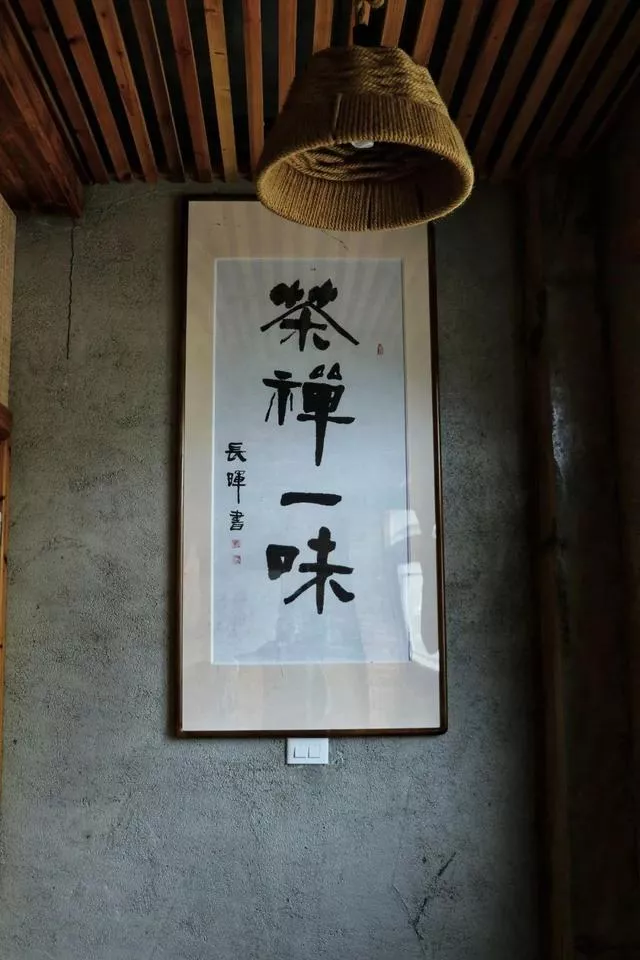 茶禪一味
長暉書